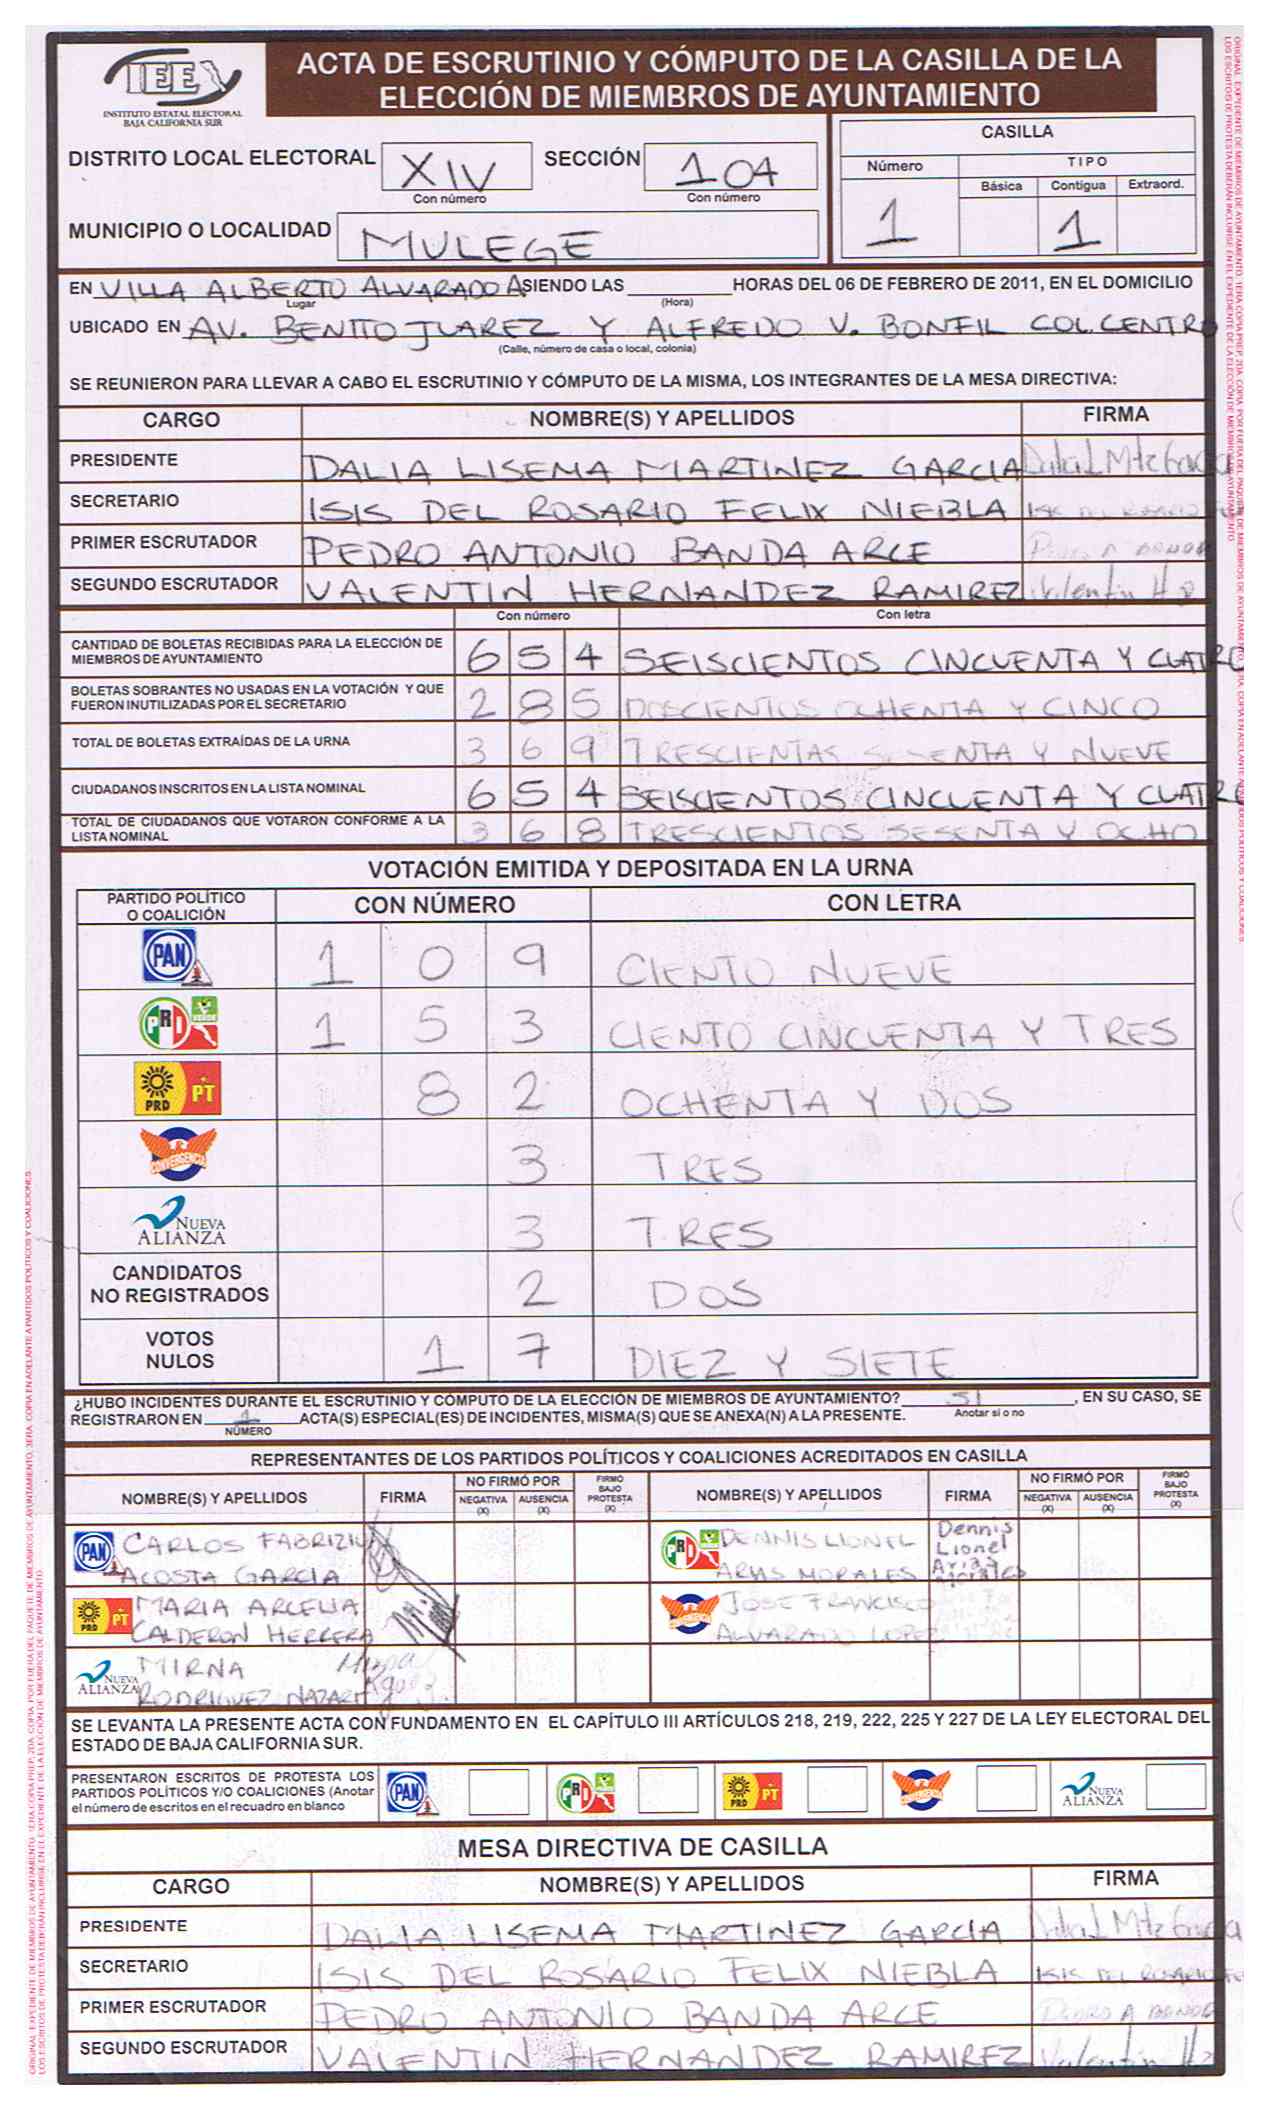 IEE
INSTITUTO ESTATAL ELECTORAL
BAJA CALIFORNIA SUR
ACTA DE ESCRUTINIO Y CÓMPUTO DE LA CASILLA DE LA
ELECCIÓN DE MIEMBROS DE AYUNTAMIENTO
DISTRITO LOCAL ELECTORAL XIV SECCIÓN 104
Con número Con número
MUNICIPIO O LOCALIDAD MULEGE
CASILLA
Número TIPO
Básica Contigua Extraord.
1 1
EN VILLA ALBERTO ALVARADO A SIENDO LAS HORAS DEL 06 DE FEBRERO DE 2011, EN EL DOMICILIO
Lugar (Hora)
UBICADO EN AV. BENITO JUAREZ Y ALFREDO V. BONFIL COL. CENTRO
(Calle, número de casa o local, colonia)
SE REUNIERON PARA LLEVAR A CABO EL ESCRUTINIO Y CÓMPUTO DE LA MISMA, LOS INTEGRANTES DE LA MESA DIRECTIVA:
CARGO NOMBRE(S) Y APELLIDOS FIRMA
PRESIDENTE DALIA LISEMA MARTINEZ GARCIA Dalia L Mtz Garcia
SECRETARIO ISIS DEL ROSARIO FELIX NIEBLA ISIS DEL ROSARIO
PRIMER ESCRUTADOR PEDRO ANTONIO BANDA ARCE Pedro A BANDA
SEGUNDO ESCRUTADOR VALENTIN HERNANDEZ RAMIREZ Valentin H R
Con número Con letra
CANTIDAD DE BOLETAS RECIBIDAS PARA LA ELECCIÓN DE
MIEMBROS DE AYUNTAMIENTO 6 5 4 SEISCIENTOS CINCUENTA Y CUATRO
BOLETAS SOBRANTES NO USADAS EN LA VOTACIÓN Y QUE
FUERON INUTILIZADAS POR EL SECRETARIO 2 8 5 DOSCIENTOS OCHENTA Y CINCO
TOTAL DE BOLETAS EXTRAÍDAS DE LA URNA 3 6 9 TRESCIENTAS SESENTA Y NUEVE
CIUDADANOS INSCRITOS EN LA LISTA NOMINAL 6 5 4 SEISCIENTOS CINCUENTA Y CUATRO
TOTAL DE CIUDADANOS QUE VOTARON CONFORME A LA
LISTA NOMINAL 3 6 8 TRESCIENTOS SESENTA Y OCHO
VOTACIÓN EMITIDA Y DEPOSITADA EN LA URNA
PARTIDO POLÍTICO
O COALICIÓN CON NÚMERO CON LETRA
PAN 1 0 9 CIENTO NUEVE
PRI VERDE 1 5 3 CIENTO CINCUENTA Y TRES
PRD PT 8 2 OCHENTA Y DOS
CONVERGENCIA 3 TRES
NUEVA
ALIANZA 3 TRES
CANDIDATOS
NO REGISTRADOS 2 DOS
VOTOS
NULOS 1 7 DIEZ Y SIETE
¿HUBO INCIDENTES DURANTE EL ESCRUTINIO Y CÓMPUTO DE LA ELECCIÓN DE MIEMBROS DE AYUNTAMIENTO? SI , EN SU CASO, SE
REGISTRARON EN 1 ACTA(S) ESPECIAL(ES) DE INCIDENTES, MISMA(S) QUE SE ANEXA(N) A LA PRESENTE. Anotar sí o no
NÚMERO
REPRESENTANTES DE LOS PARTIDOS POLÍTICOS Y COALICIONES ACREDITADOS EN CASILLA
NOMBRE(S) Y APELLIDOS FIRMA NO FIRMÓ POR NEGATIVA (X) AUSENCIA (X) FIRMÓ BAJO PROTESTA (X) NOMBRE(S) Y APELLIDOS FIRMA NO FIRMÓ POR NEGATIVA (X) AUSENCIA (X) FIRMÓ BAJO PROTESTA (X)
PAN CARLOS FABRIZIO PRI DENNIS LIONEL Dennis Lionel
ACOSTA GARCIA ARIAS MORALES Arias Morales
PRD PT MARIA ARCELIA CONVERGENCIA JOSE FRANCISCO
CALDERON HERRERA ALVARADO LOPEZ
NUEVA MIRNA Mirna
ALIANZA RODRIGUEZ
SE LEVANTA LA PRESENTE ACTA CON FUNDAMENTO EN EL CAPÍTULO III ARTÍCULOS 218, 219, 222, 225 Y 227 DE LA LEY ELECTORAL DEL
ESTADO DE BAJA CALIFORNIA SUR.
PRESENTARON ESCRITOS DE PROTESTA LOS
PARTIDOS POLÍTICOS Y/O COALICIONES (Anotar
el número de escritos en el recuadro en blanco
PAN PRI PRD PT CONVERGENCIA NUEVA ALIANZA
MESA DIRECTIVA DE CASILLA
CARGO NOMBRE(S) Y APELLIDOS FIRMA
PRESIDENTE DALIA LISEMA MARTINEZ GARCIA Dalia L Mtz Garcia
SECRETARIO ISIS DEL ROSARIO FELIX NIEBLA ISIS DEL ROSARIO FE
PRIMER ESCRUTADOR PEDRO ANTONIO BANDA ARCE Pedro A BANDA
SEGUNDO ESCRUTADOR VALENTIN HERNANDEZ RAMIREZ Valentin H R
ORIGINAL: EXPEDIENTE DE MIEMBROS DE AYUNTAMIENTO, 1ERA. COPIA PREP, 2DA. COPIA: POR FUERA DEL PAQUETE DE MIEMBROS DE AYUNTAMIENTO, 3ERA. COPIA EN ADELANTE A PARTIDOS POLÍTICOS Y COALICIONES.
LOS ESCRITOS DE PROTESTA DEBERÁN INCLUIRSE EN EL EXPEDIENTE DE LA ELECCIÓN DE MIEMBROS DE AYUNTAMIENTO.